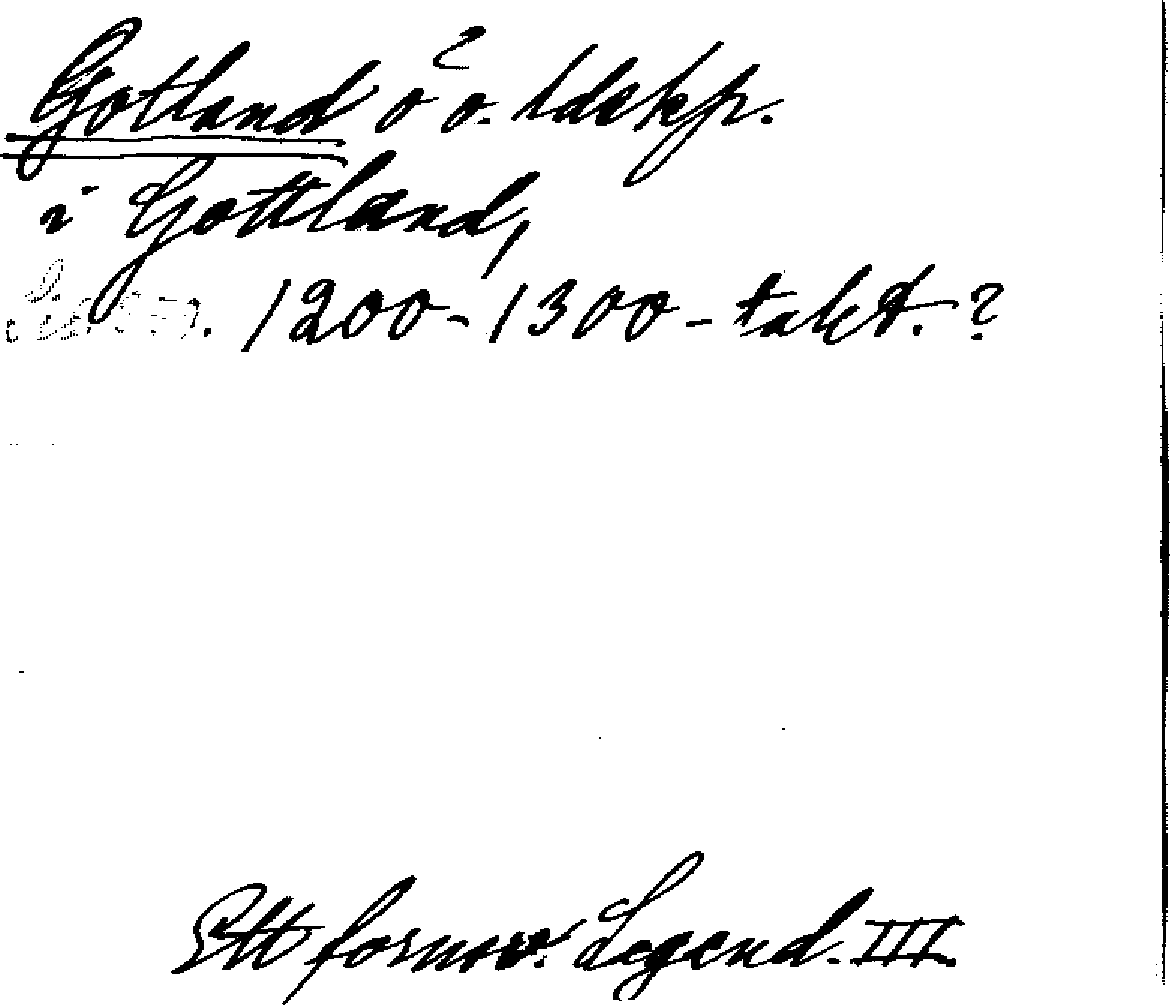 Gotland ö o. ldskp.
i Gottland,
1200-1300-takt.?
Ett fornsv. Legend. III.